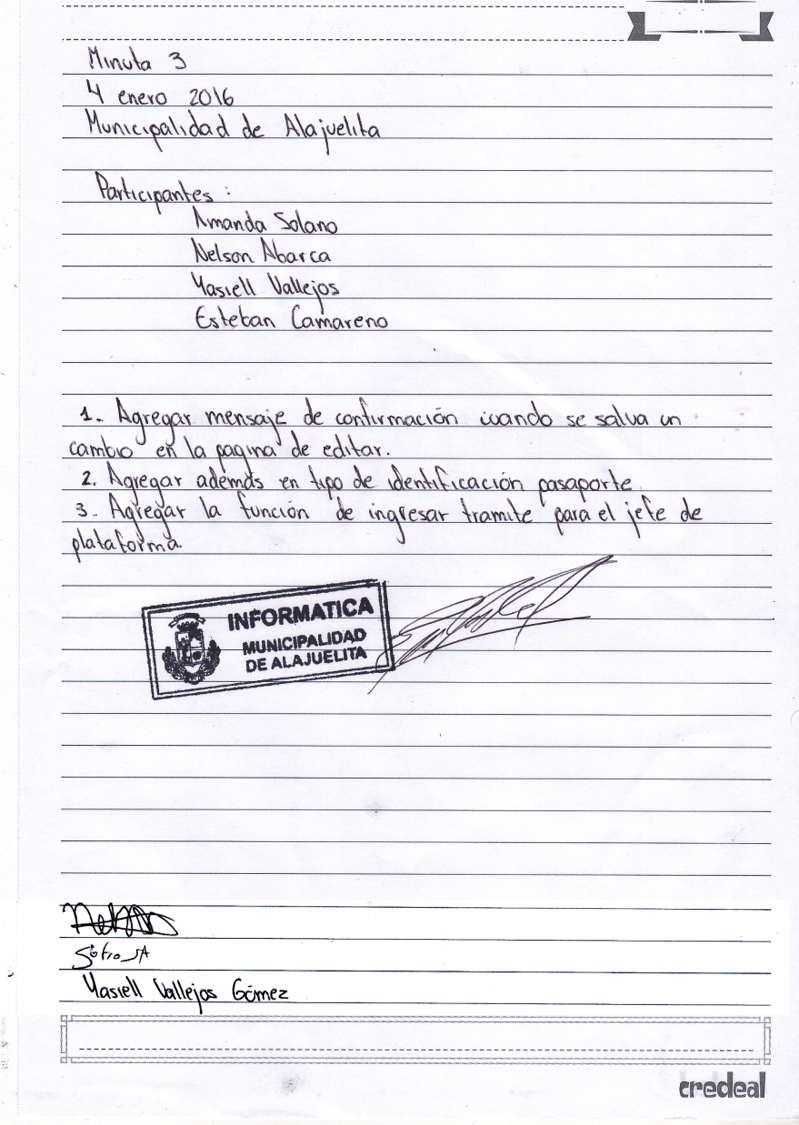 Minuta 3
4 enero 2016
Municipalidad de Alajuelita
Participantes :
Amanda Solano
Nelson Abarca
Yasiell Vallejos
Esteban Camareno
1. Agregar mensaje de confirmación cuando se salva un
cambio en la pagina de editar.
2. Agregar además en tipo de identificación pasaporte.
3. Agregar la función de ingresar tramite para el jefe de
plataforma.
INFORMATICA
MUNICIPALIDAD
DE ALAJUELITA
Yasiell Vallejos Gómez
credeal